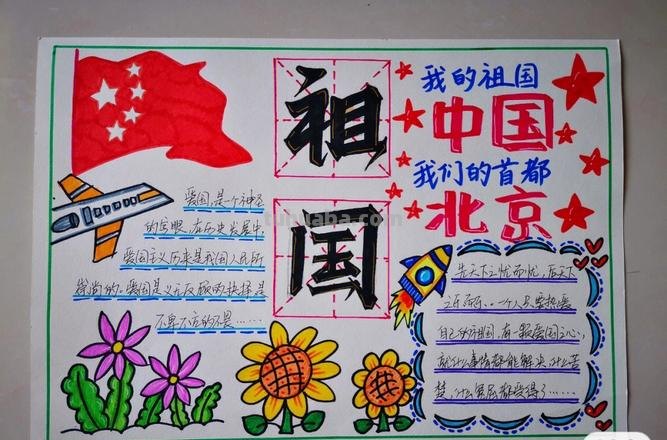 祖
国
我的祖国
中国
我们的首都
北京
爱国,是一个神圣
的字眼,在历史发展中,
爱国主义历来是我国人民所
崇尚的.爱国是义无反顾的抉择是
不
先天下之忧而忧,后天下
之乐而乐..一个人只要热爱
自己的祖国,有一颗爱国之心,
就什么事情都能解决,什么苦
楚,什么冤屈都受得了……
tuhuaba.com